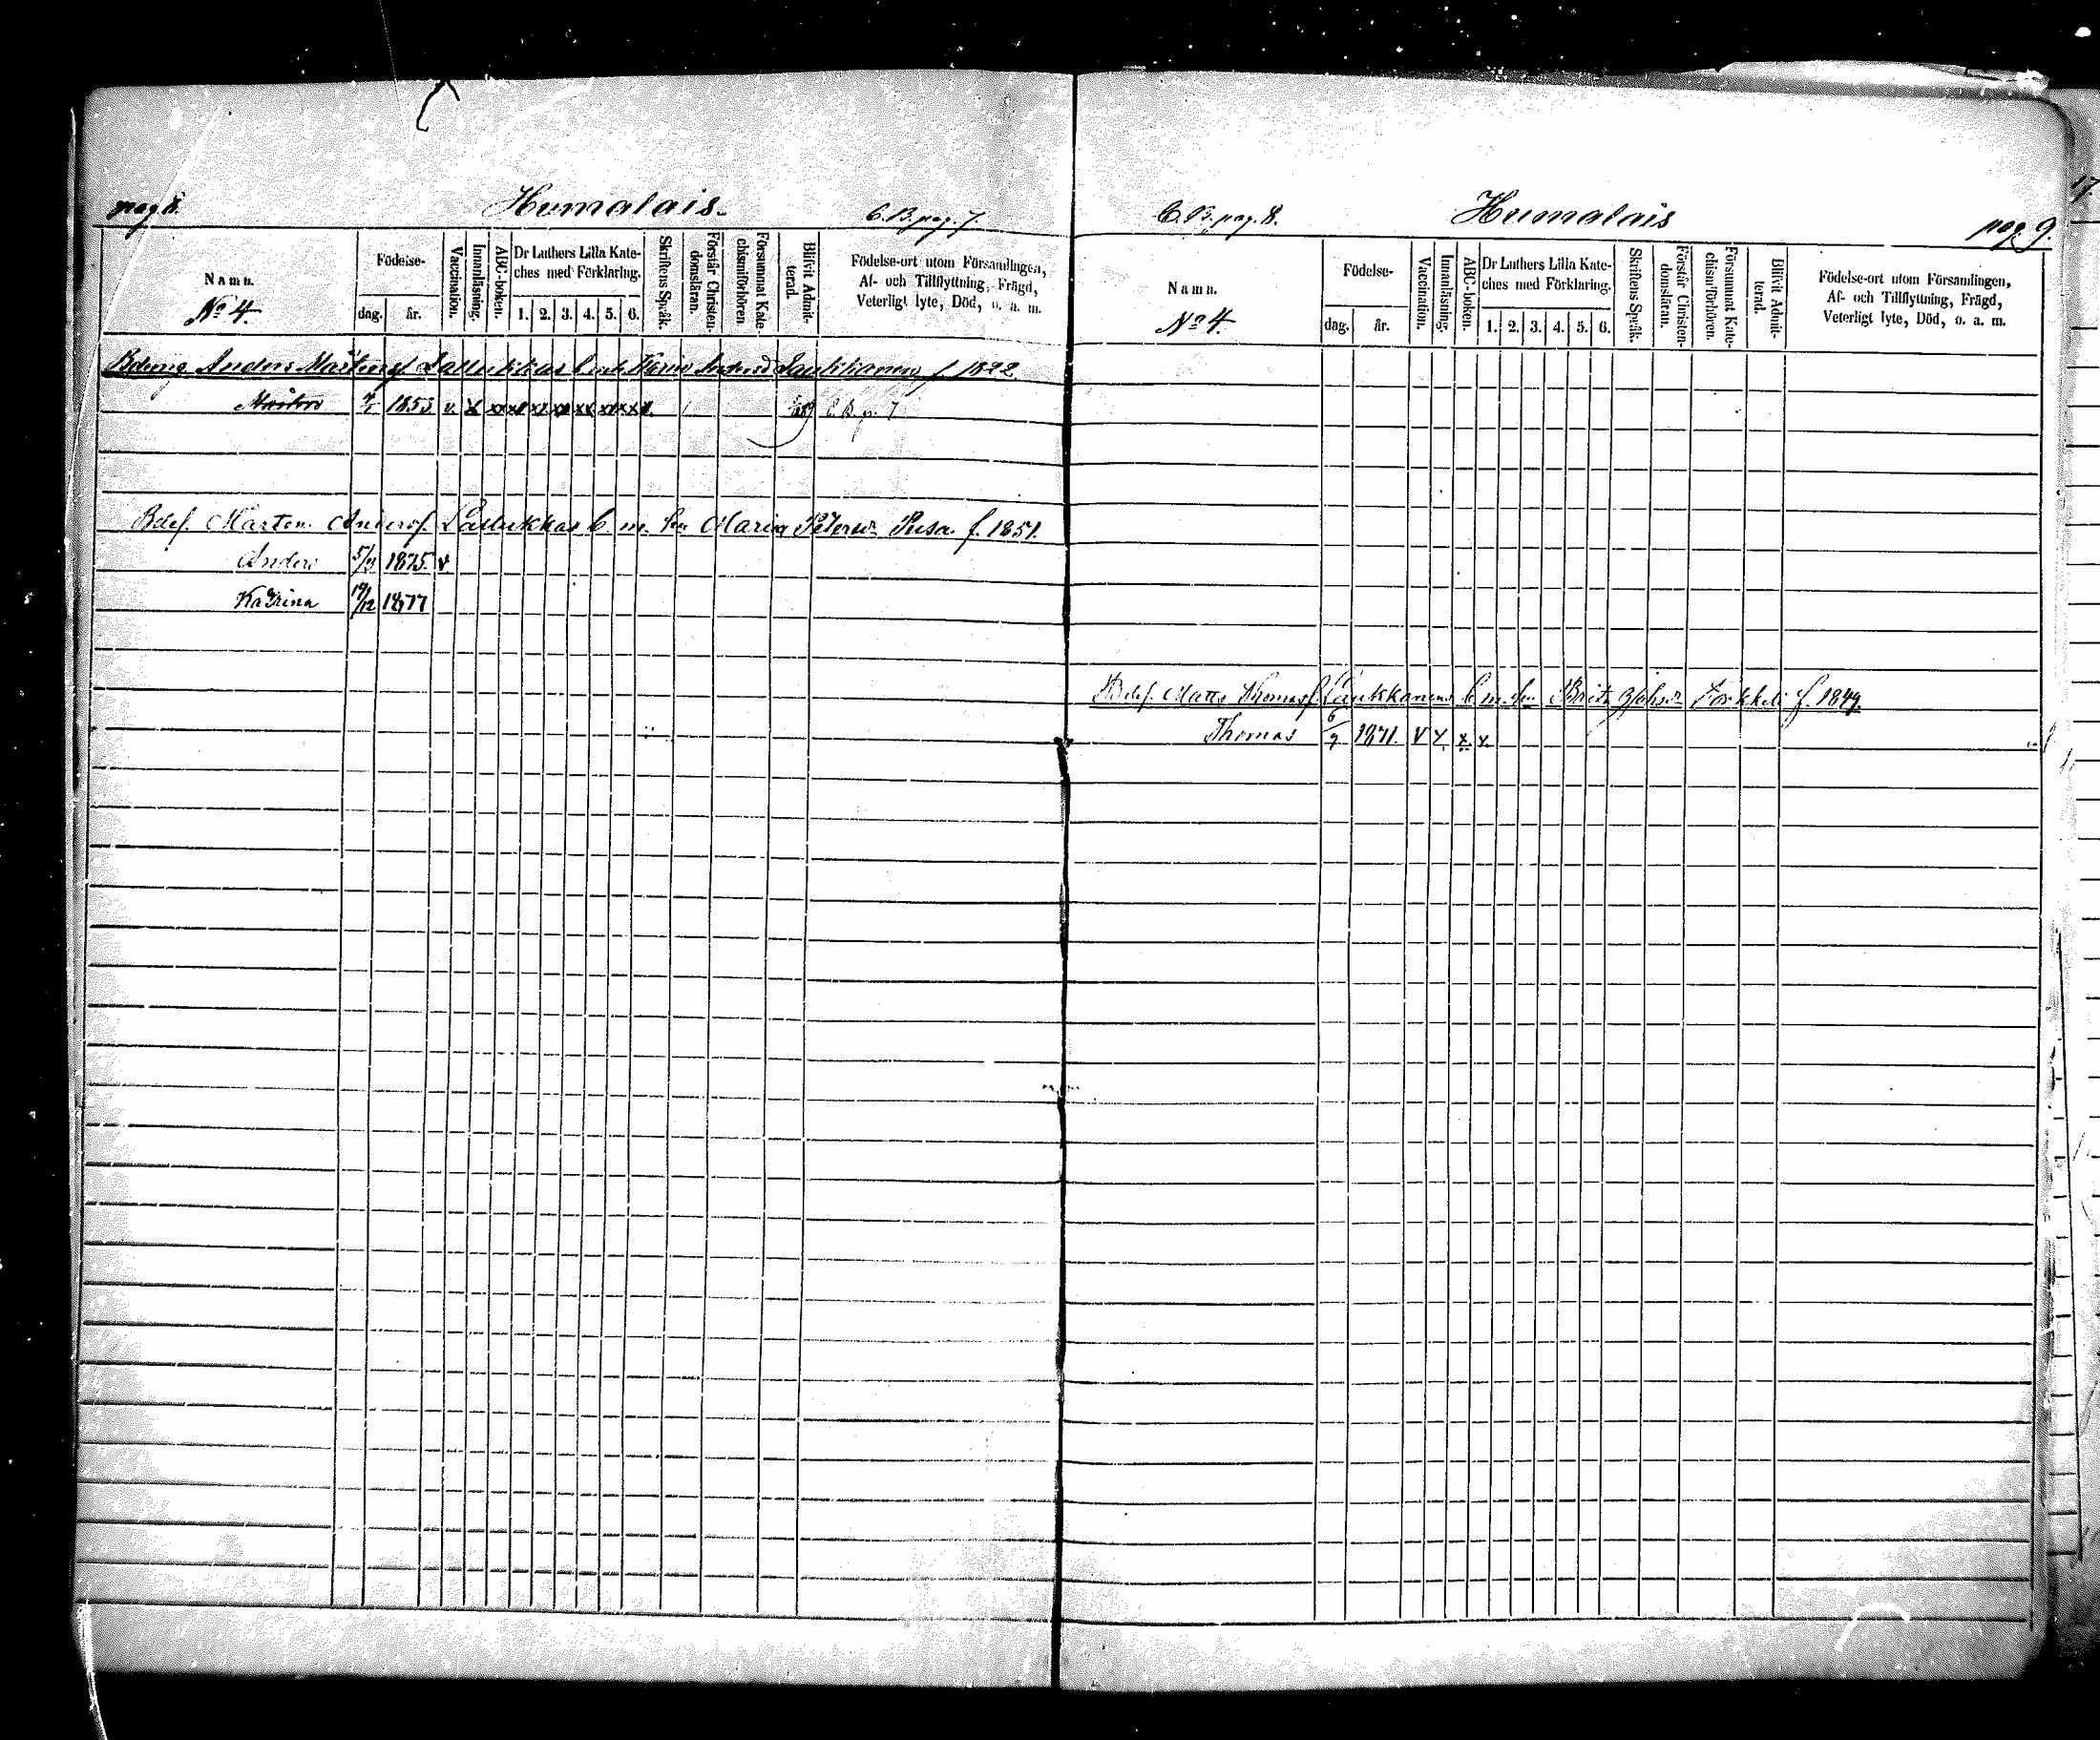 pag 8.
Humalais.
C. B. pag. 7.
Namn.
No 4.
Födelse-
dag.
år.
Vaccination.
Innanläsning.
ABC-boken.
Dr Luthers Lilla Kate-
ches med Förklaring.
1. 2. 3. 4. 5. 6.
Skriftens Språk.
Förstår Christen-
domsläran.
Försummat Kate-
chismiförhören.
Blifvit Admit-
terad.
Födelse-ort utom Församlingen,
Af- och Tillflyttning, Frägd,
Veterligt lyte, Död, o. a. m.
Anders Laukkanen f 1822.
1853 v. x
C. B. p. 7
Bdef. Marten Andersf. b. m. hu Maria Petersdr Pusa f. 1851.
Anders 5/3 1875. v
Katrina 19/12 1877
C. B. pag. 8.
Humalais
pag 9.
Namn.
No 4.
Födelse-
dag.
år.
Vaccination.
Innanläsning.
ABC-boken.
Dr Luthers Lilla Kate-
ches med Förklaring.
1. 2. 3. 4. 5. 6.
Skriftens Språk.
Förstår Christen-
domsläran.
Försummat Kate-
chism'förhören.
Blifvit Admit-
terad.
Födelse-ort utom Församlingen,
Af- och Tillflyttning, Frägd,
Veterligt lyte, Död, o. a. m.
Bdef. Matts Thomasf. Laukkanens b. m. hu Brita f. 1849.
Thomas 6/9 1871. v x x x
17.